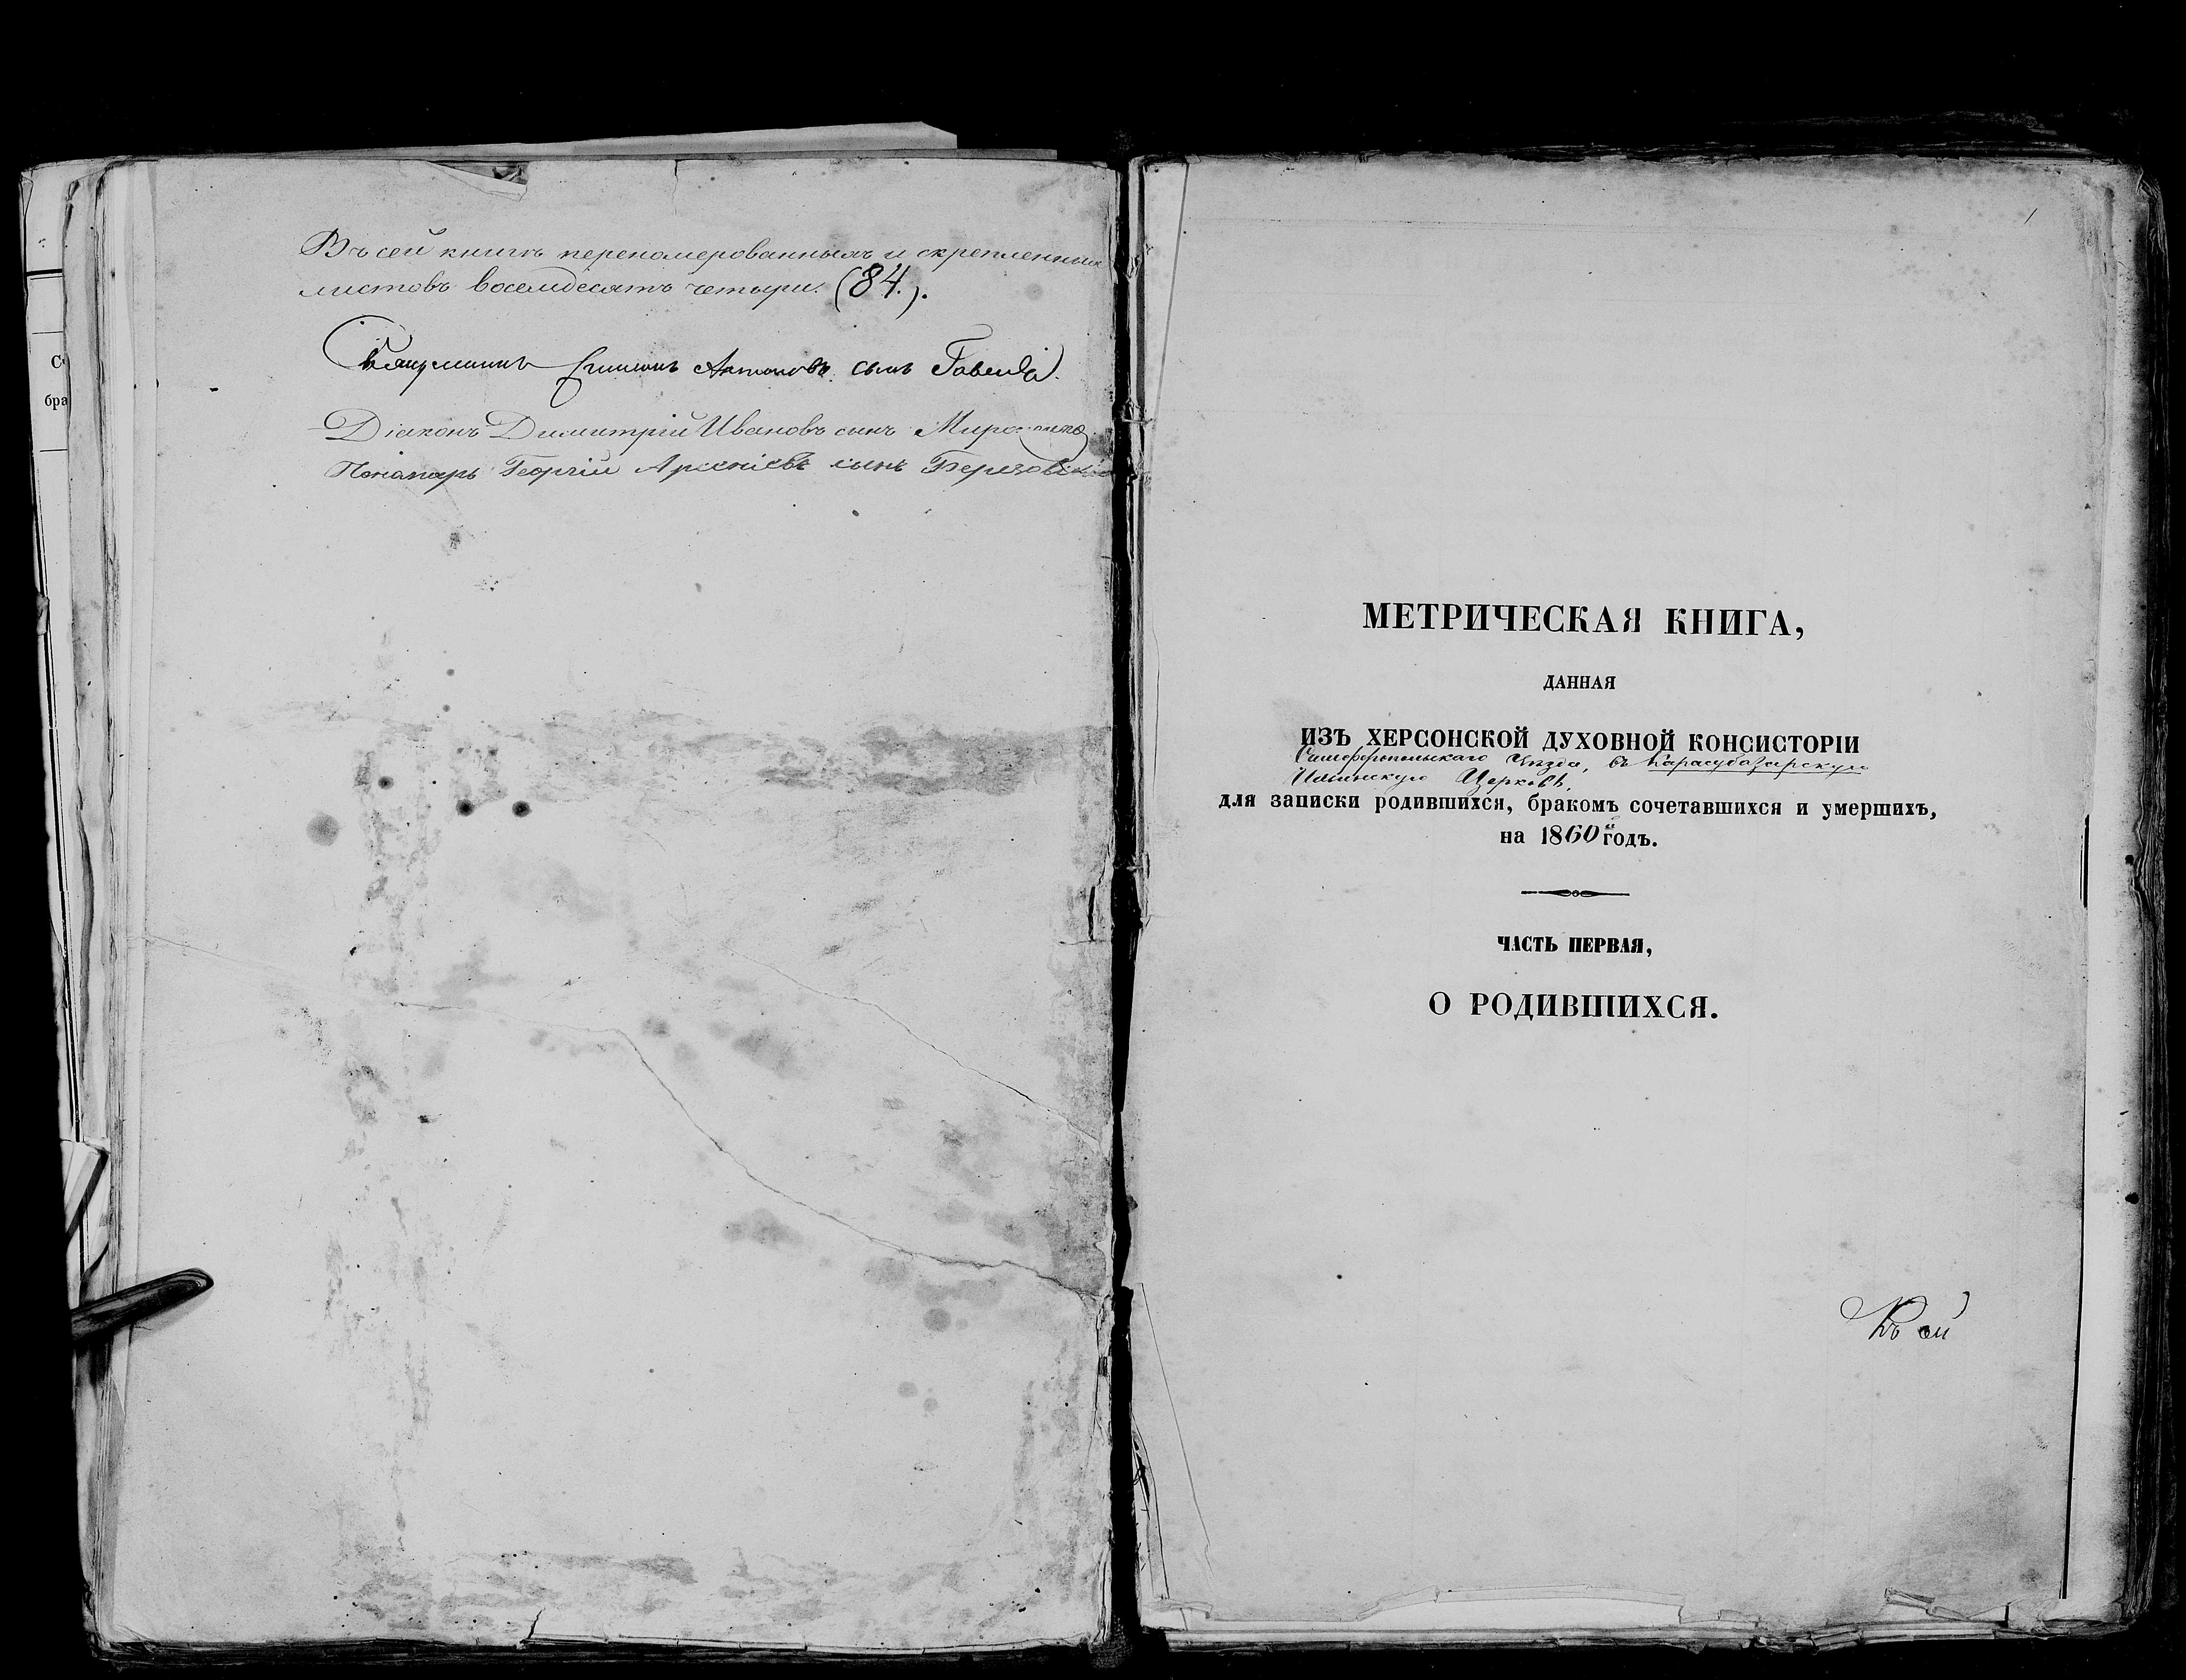 Въ сей книгѣ перепомерованныхъ и скрепленныхъ
листовъ восемдесятъ четыри. (84.).
Священникъ Антоновъ сынъ
Діаконъ Димитрій Ивановъ сынъ
Понамарь Георгій Арсеніевъ сынъ
Со
бра
1
МЕТРИЧЕСКАЯ КНИГА,
ДАННАЯ
ИЗЪ ХЕРСОНСКОЙ ДУХОВНОЙ КОНСИСТОРІИ
Симферопольскаго уѣзда, въ Карасубазарскую
Ильинскую Церковь,
для записки родившихся, бракомъ сочетавшихся и умершихъ,
на 1860й годъ.
ЧАСТЬ ПЕРВАЯ,
О РОДИВШИХСЯ.
Къ сей